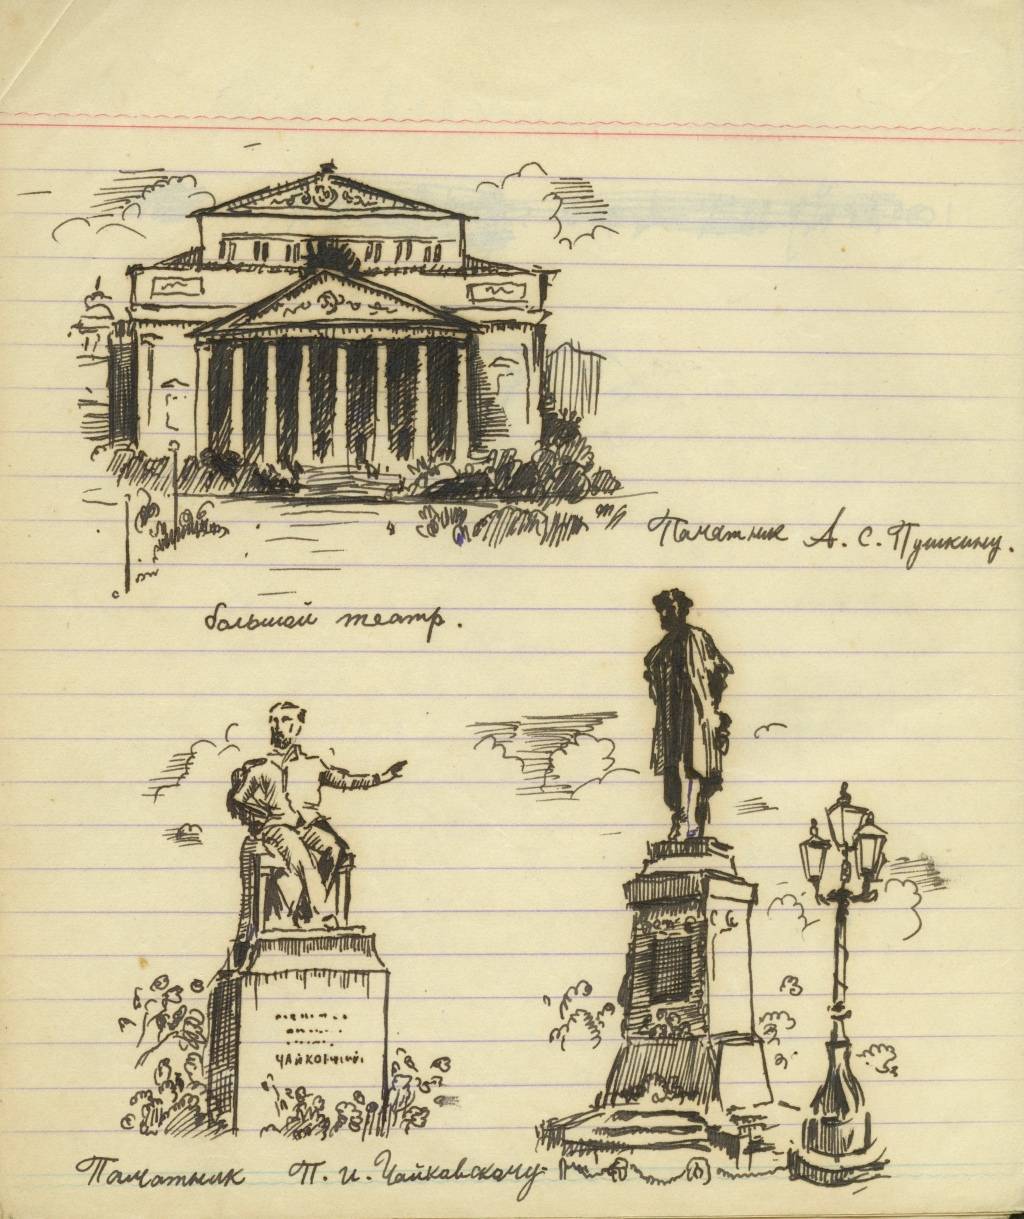 Памятник А. С. Пушкину.
большой театр.
ЧАЙКОВСКИЙ
Памятник П. И. Чайковскому